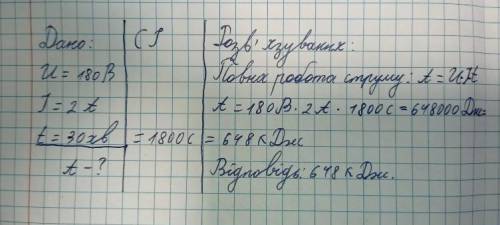 Дано:
U = 180 В
I = 2 А
t = 30 хв
А - ?
СІ
= 1800 с
Розв'язування:
Повна робота струму: A = UIt
A = 180 В · 2 А · 1800 с = 648000 Дж =
= 648 кДж
Відповідь: 648 кДж.